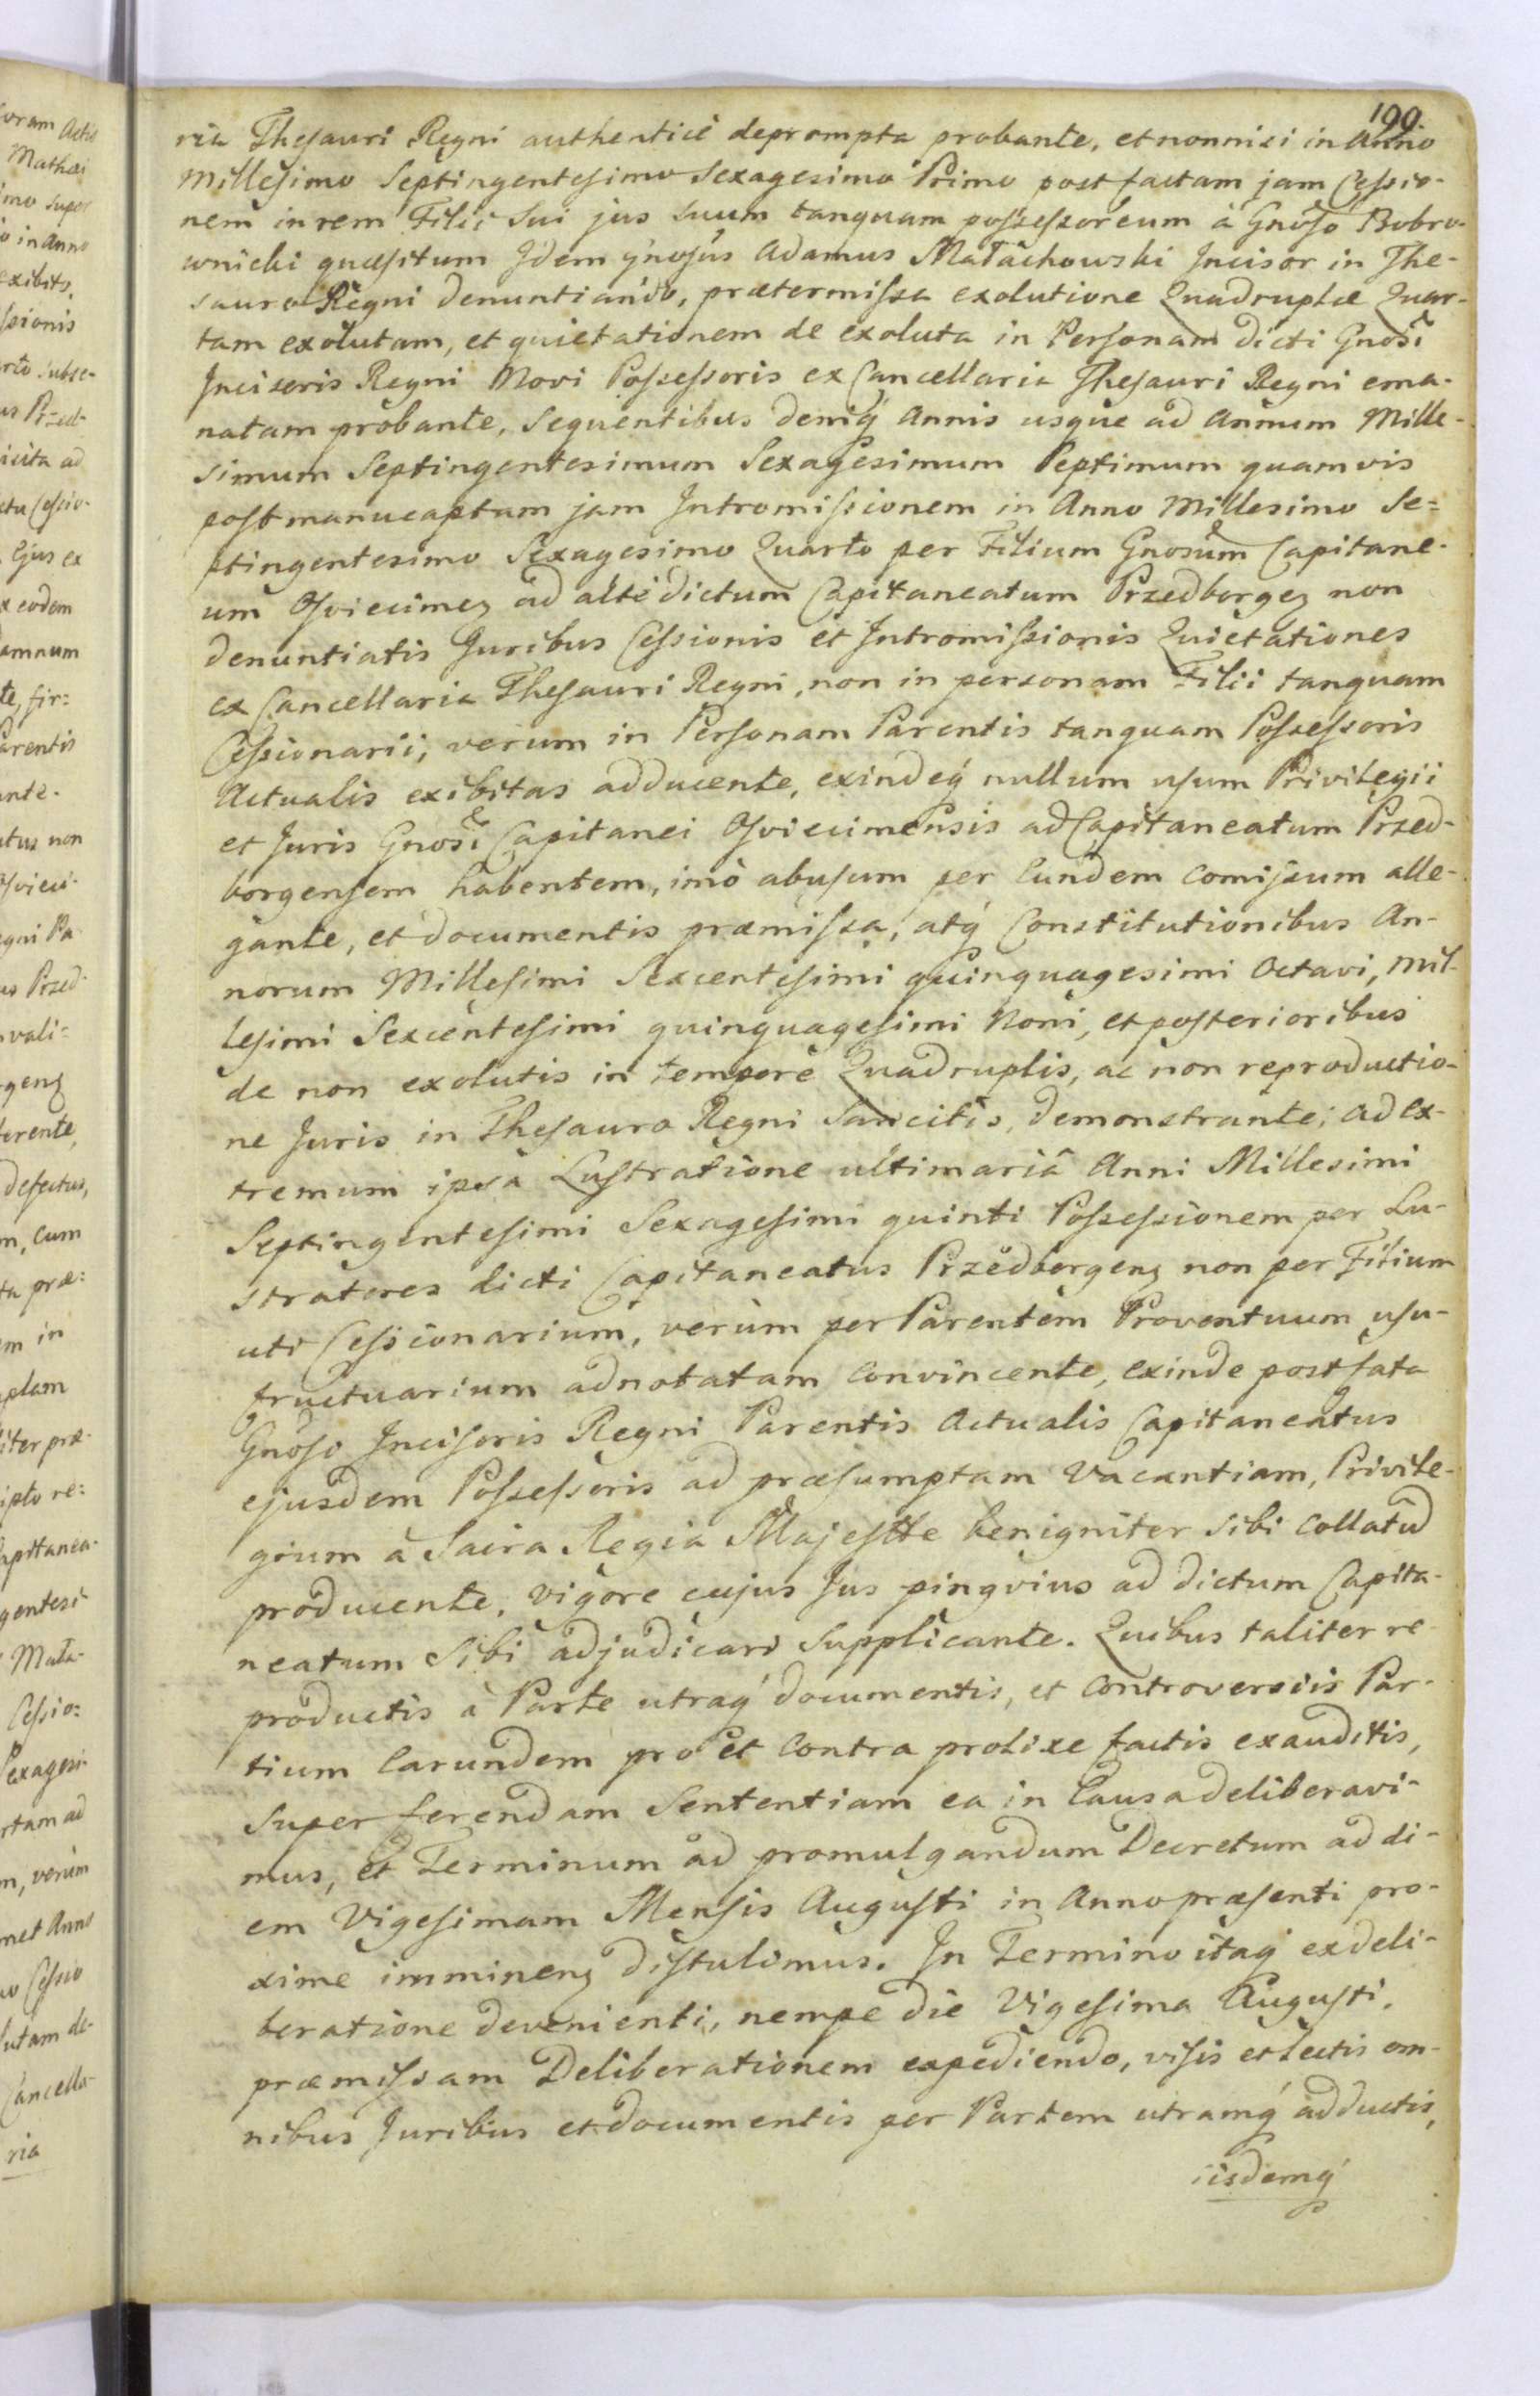 199.
ria Thesauri Regni authenticè deprompta probante, et nonnisi in Anno
Millesimo Septingentesimo Sexagesimo Primo post factam jam Cessio-
nem in rem Filii Sui jus suum tanquam possessoreum à Gnoso Bobro-
wnicki quæsitum Idem gnosus Adamus Małachowski Incisor in The-
sauro Regni denuntiando, prætermissa exolutione Quadruplæ Quar-
tam exolutam, et quietationem de exoluta in Personam dicti Gnosi
Incisoris Regni Novi Possessoris ex Cancellaria Thesauri Regni ema-
natam probante, Sequentibus deniq́ Annis usque ad Annum Mille-
simum Septingentesimum Sexagesimum Septimum quamvis
post manucaptam jam Intromissionem in Anno Millesimo Se=
ptingentesimo Sexagesimo Quarto per Filium Gnosum Capitane-
um Osviecimeń ad altè dictum Capitaneatum Przedborgeń non
denuntiatis Juribus Cessionis et Intromissionis Quietationes
ex Cancellaria Thesauri Regni, non in personam Filii tanquam
Cessionarii, verum in Personam Parentis tanquam Possessoris
Actualis exibitas adducente, exindeq́ nullum usum Privilegii
et Juris Gnosi Capitanei Osviecimensis ad Capitaneatum Przed-
borgensem habentem, imò abusum per Eundem Comissum alle-
gante, et documentis præmissa, atq́ Constitutionibus An-
norum Millesimi Sexcentesimi quinquagesimi Octavi, Mil-
lesimi Sexcentesimi quinquagesimi Noni, et posterioribus
de non exolutis in tempore Quadruplis, ac non reproductio-
ne Juris in Thesauro Regni Sancitis, demonstrante; ad ex-
tremum ipsa Lustratione ultimariâ Anni Millesimi
Septingentesimi Sexagesimi quinti Possessionem per Lu-
stratores dicti Capitaneatus Przedborgeń non per Filium
uti Cessionarium, verùm per Parentem Proventuum usu-
fructuarium adnotatam Convincente, exinde post fata
Gnoso Incisoris Regni Parentis Actualis Capitaneatus
ejusdem Possessoris ad præsumptam Vacantiam, Privile-
gium à Sacra Regia Majestte benigniter sibi Collatū
producente, vigore cujus Jus pingvius ad dictum Capita-
neatum sibi adjudicari Supplicante. Quibus taliter re-
productis à Parte utraq́ documentis, et Controversiis Par-
tium Earundem pro et Contra prolixe factis exauditis,
Super ferendam Sententiam ea in Causa deliberavi-
mus, et Terminum ad promulgandum Decretum ad di-
em Vigesimam Mensis Augusti in Anno præsenti pro-
xime immineń distulimus. In Termino itaq́ ex deli-
beratione devenienti, nempe die Vigesima Augusti,
præmissam Deliberationem expediendo, visis et lectis om-
nibus Juribus et documentis per Partem utramq́ adductis,
iisdemq́